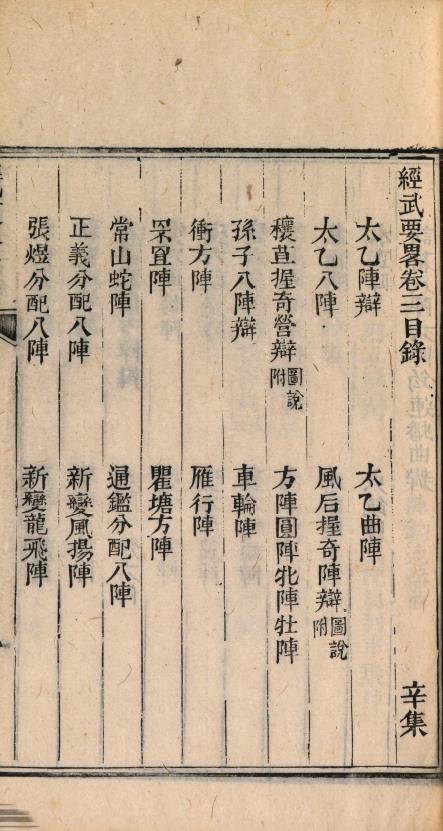 經武要畧卷三目錄 辛集
太乙陣辯 太乙曲陣
太乙八陣 風后握奇陣辯圖說附
穰苴握奇營辯圖說附 方陣圓陣牝陣牡陣
孫子八陣辯 車輪陣
衝方陣 雁行陣
罘罝陣 瞿塘方陣
常山蛇陣 通鑑分配八陣
正義分配八陣 新變風揚陣
張煜分配八陣 新變龍飛陣